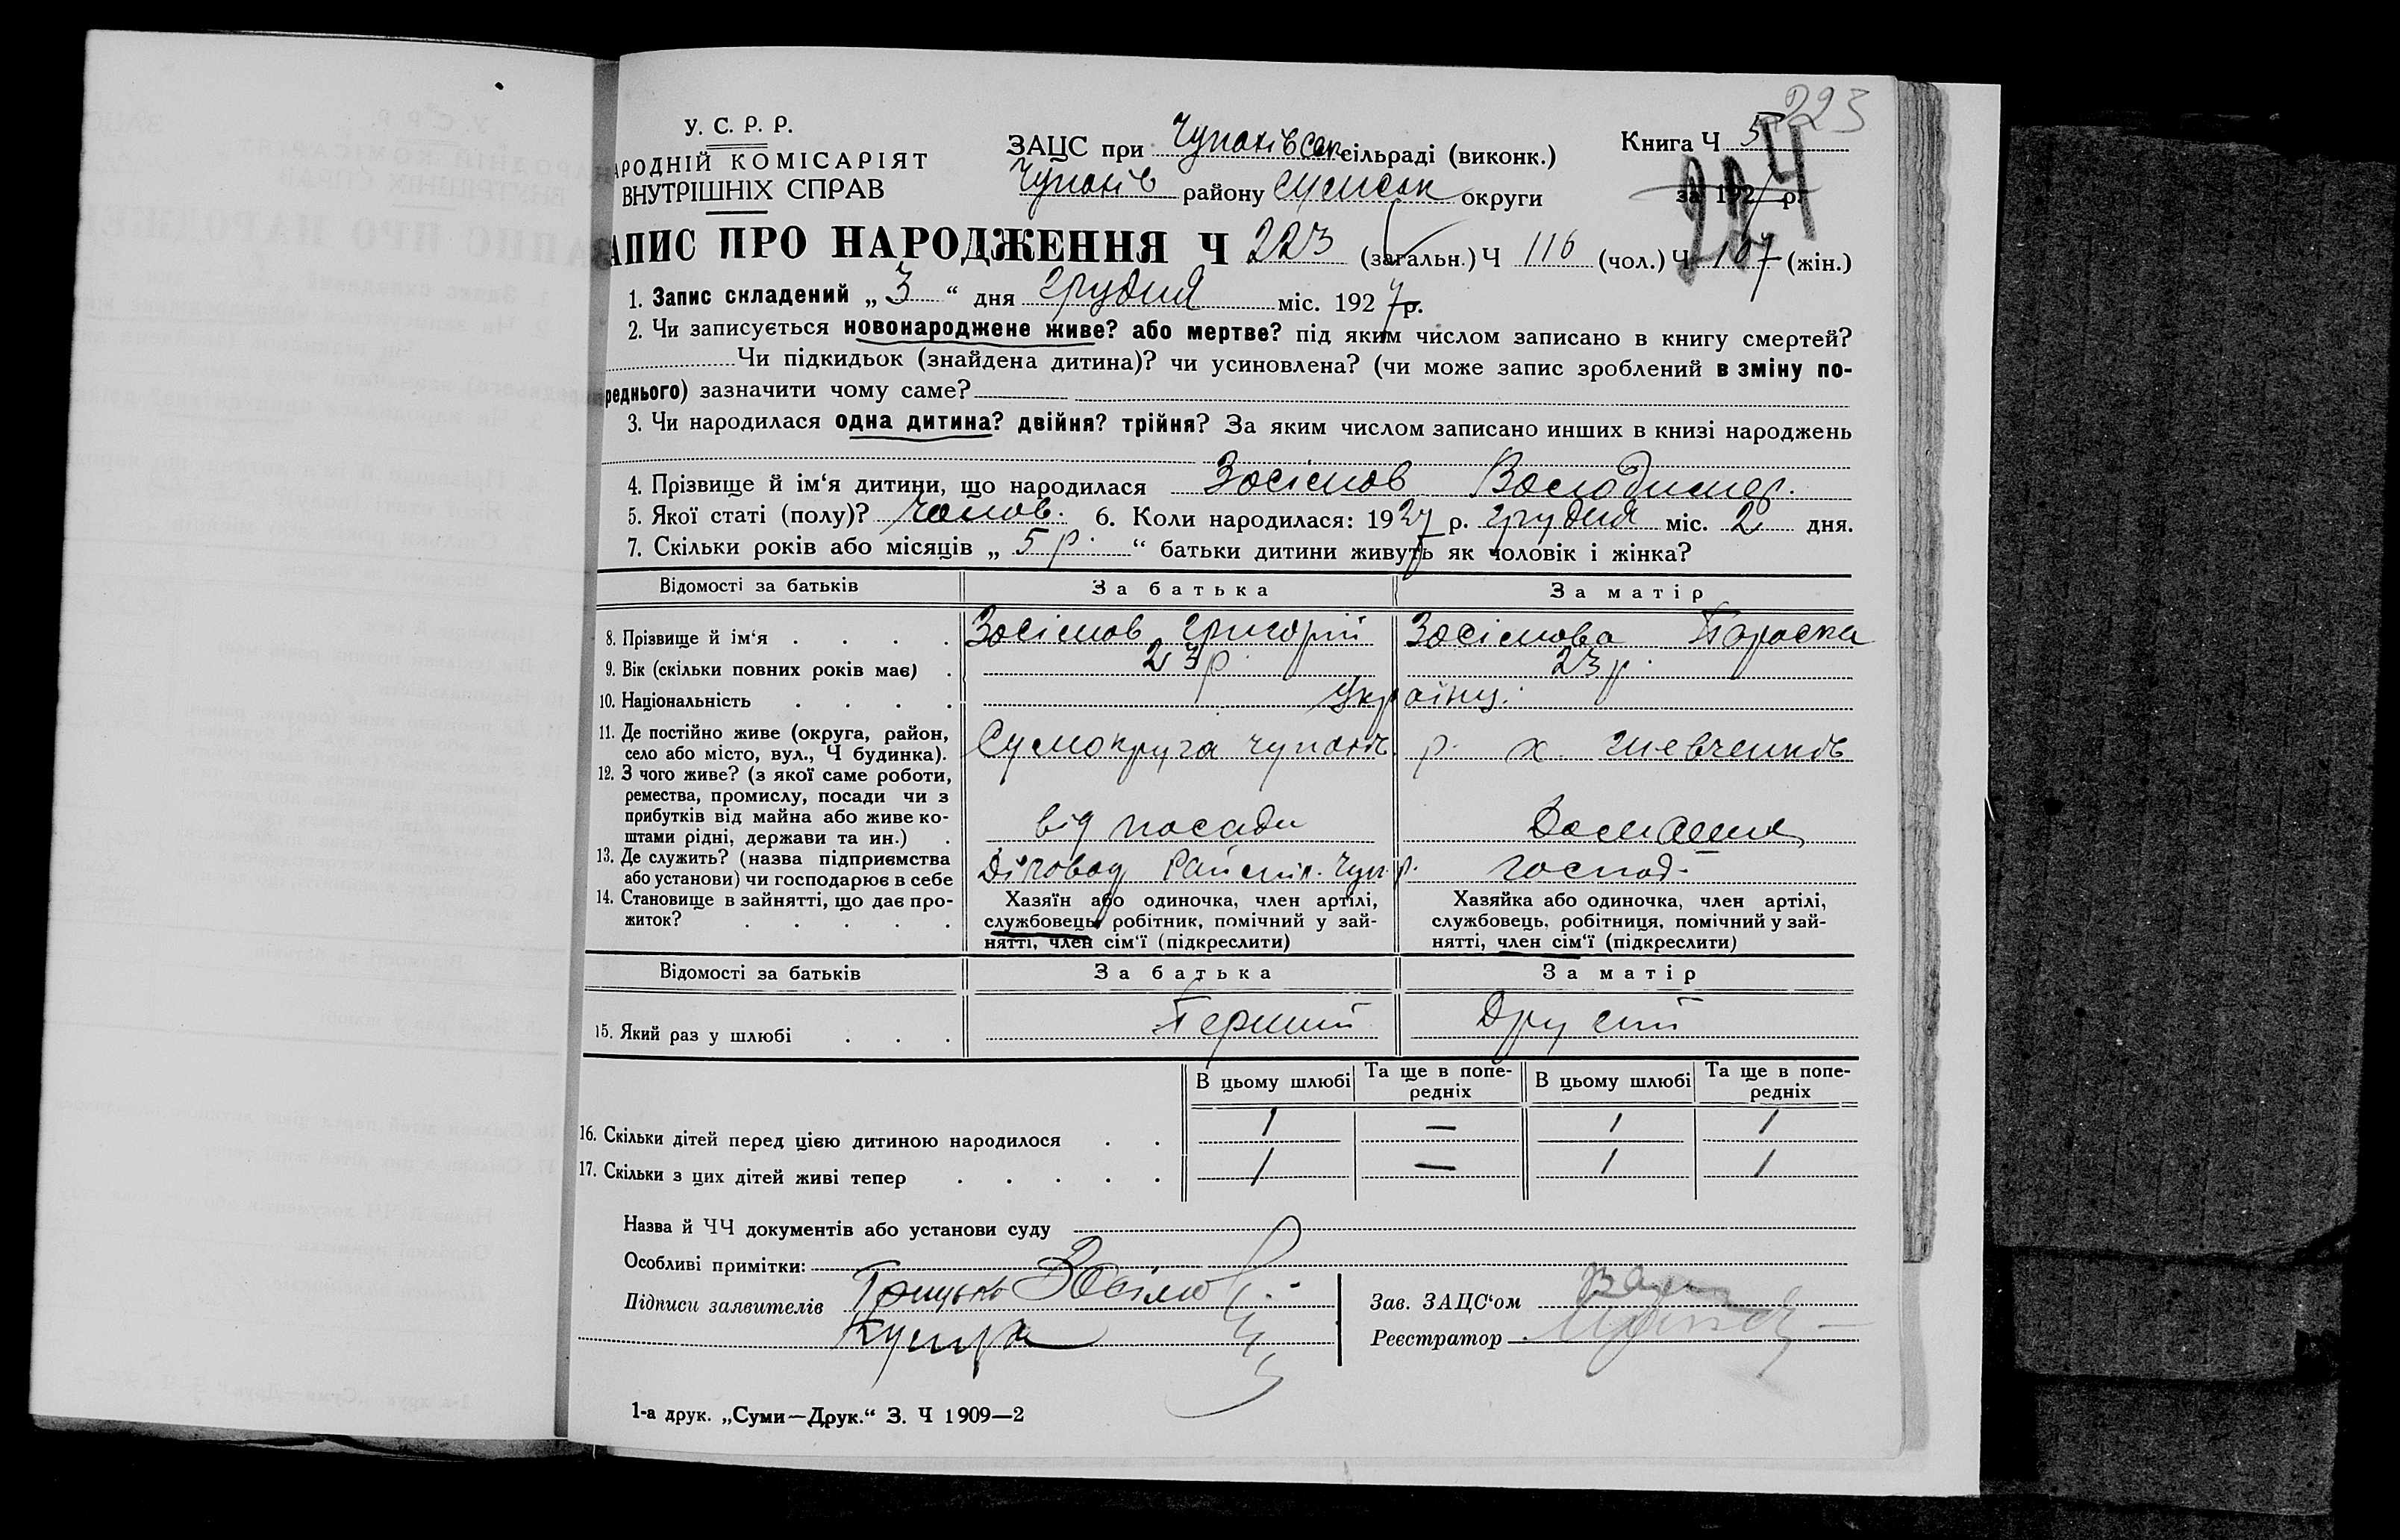 223
У. С. Р. Р.
АРОДНІЙ КОМІСАРІЯТ
ВНУТРІШНІХ СПРАВ
ЗАЦС при Чупахівськ сільраді (виконк.)
Чупахів району Сумськ округи
Книга Ч 5
за 1927 р.
224
АПИС ПРО НАРОДЖЕННЯ Ч 223 (загальн.) Ч 116 (чол.) Ч 107 (жін.)
1. Запис складений „ 3 “ дня грудня міс. 1927 р.
2. Чи записується новонароджене живе? або мертве? під яким числом записано в книгу смертей?
Чи підкидьок (знайдена дитина)? чи усиновлена? (чи може запис зроблений в зміну по-
реднього) зазначити чому саме?
3. Чи народилася одна дитина? двійня? трійня? За яким числом записано инших в книзі народжень
4. Прізвище й ім‘я дитини, що народилася Зосімов Володимер.
5. Якої статі (полу)? чолов. 6. Коли народилася: 1927 р. грудня міс. 2 дня.
7. Скільки років або місяців „ 5 р. “ батьки дитини живуть як чоловік і жінка?
Відомості за батьків За батька За матір
8. Прізвище й ім‘я Зосімов Григорій Зосімова Параска
9. Вік (скільки повних років має) 23 р. 23 р.
10. Національність Українц.
11. Де постійно живе (округа, район,
село або місто, вул., Ч будинка). Сумокруга Чупахів. р. х. Шевченків
12. З чого живе? (з якої саме роботи,
ремества, промислу, посади чи з
прибутків від майна або живе ко-
штами рідні, держави та ин.) від посади Домашнє
13. Де служить? (назва підприємства
або установи) чи господарює в себе Діловод Чуп. р. господ.
14. Становище в зайнятті, що дає про-
житок?
Хазяїн або одиночка, член артілі,
службовець, робітник, помічний у зай-
нятті, член сім‘ї (підкреслити)
Хазяйка або одиночка, член артілі,
службовець, робітниця, помічний у зай-
нятті, член сім‘ї (підкреслити)
Відомості за батьків За батька За матір
15. Який раз у шлюбі Перший Другий
В цьому шлюбі Та ще в попе-редніх В цьому шлюбі Та ще в попе-редніх
16. Скільки дітей перед цією дитиною народилося 1 — 1 1
17. Скільки з цих дітей живі тепер 1 — 1 1
Назва й ЧЧ документів або установи суду
Особливі примітки:
Підписи заявителів Грицько Зосімов
Зав. ЗАЦС‘ом
Реєстратор
1-а друк. „Суми—Друк.“ З. Ч 1909—2